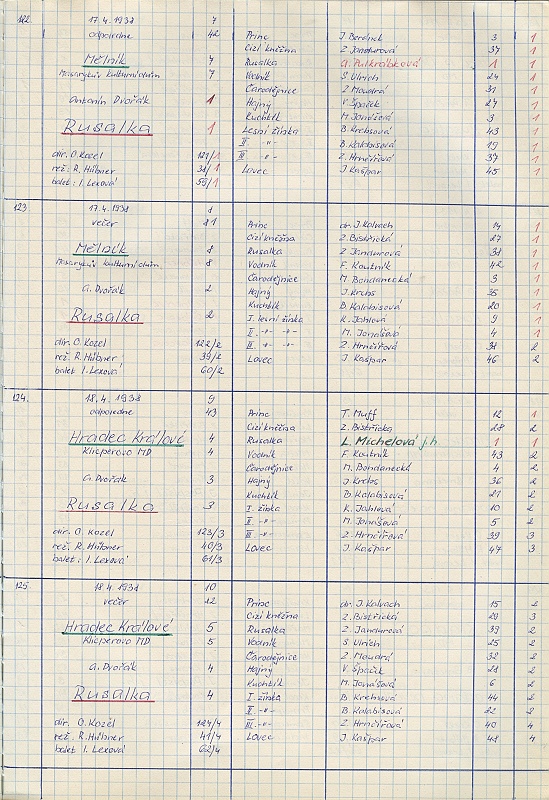 122 17.4.1938 7
odpoledne 42 Princ J. Berdnek 3 1
Cizí kněžna Z. Jandurová 37 1
Mělník 7 Rusalka A. Pulkrábková 1 1
Masarykův kulturní dům 7 Vodník S. Ulrich 24 1
Čarodějnice Z. Moudrá 31 1
Antonín Dvořák 1 Hajný V. Špaček 27 1
Kuchtík M. Jonášová 3 1
Rusalka 1 Lesní žínka B. Krehsová 43 1
II. -"- B. Kalabisová 19 1
dir. O. Kozel 121/1 III. -"- Z. Hrnčířová 37 1
rež: R. Hübner 38/1 Lovec J. Kašpar 45 1
balet: I. Lexová 59/1
123 17.4.1938 8
večer 11 Princ dr. J. Kalvach 14 1
Cizí kněžna Z. Bistřická 27 1
Mělník 8 Rusalka Z. Jandurová 38 1
Masarykův kulturní dům 8 Vodník F. Koutník 42 1
Čarodějnice M. Bondanecká 3 1
A. Dvořák 2 Hajný J. Krchs 35 1
Kuchtík B. Kalabisová 20 1
Rusalka 2 I. lesní žínka K. Jahlová 9 1
II. -"- M. Jonášová 4 1
dir. O. Kozel 122/2 III. -"- Z. Hrnčířová 38 2
rež. R. Hübner 39/2 Lovec J. Kašpar 46 2
balet I. Lexová 60/2
124. 18.4.1938 9
odpoledne 43 Princ T. Muff 12 1
Cizí kněžna Z. Bistřická 28 2
Hradec Králové 4 Rusalka L. Michelová j.h. 1 1
Klicperovo MD 4 Vodník F. Koutník 43 2
Čarodějnice M. Bondanecká 4 2
A. Dvořák 3 Hajný J. Krchs 36 2
Kuchtík B. Kalabisová 21 2
Rusalka 3 I. žínka K. Jahlová 10 2
II. -"- M. Jonášová 5 2
dir. O. Kozel 123/3 III. -"- Z. Hrnčířová 39 3
rež. R. Hübner 40/3 Lovec J. Kašpar 47 3
balet: I. Lexová 61/3
125 18.4.1938 10
večer 12 Princ dr. J. Kalvach 15 2
Cizí kněžna Z. Bistřická 29 3
Hradec Králové 5 Rusalka Z. Jandurová 39 2
Klicperovo MD 5 Vodník S. Ulrich 25 2
Čarodějnice Z. Moudrá 32 2
A. Dvořák 4 Hajný V. Špaček 28 2
Kuchtík M. Jonášová 6 2
Rusalka 4 I. žínka B. Krehsová 44 2
II. -"- B. Kalabisová 22 2
dir. O. Kozel 124/4 III. -"- Z. Hrnčířová 40 4
rež. R. Hübner 41/4 Lovec J. Kašpar 48 4
balet I. Lexová 62/4